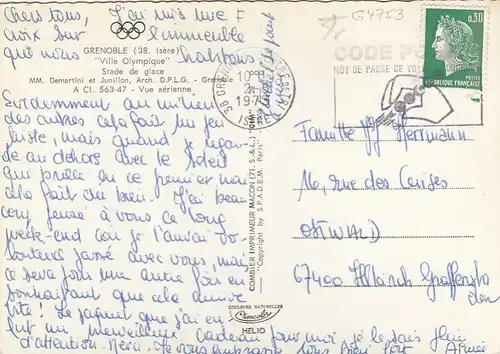 Chers tous, J'ai mis une
croix sur l'immeuble
que nous habitons
GRENOBLE (38. Isère)
"Ville Olympique"
Stade de glace
MM. Demartini et Junillon, Arch. D.P.L.G. - Grenoble
A CI. 563-47 - Vue aérienne
Evidemment au milieu
des autres cela fait un peu
triste, mais quand je regar-
de au dehors avec le soleil
qui brille en ce premier mai
cela fait du bien. J'ai beau
coup pensé à vous ce long
week-end car je l'aurai vo-
lontiers passé avec vous, mais
ce sera pour une autre fois en
souhaitant que cela arrive
vite! Le paquet que j'ai eu
fut un merveilleux cadeau pour moi je le sais plein
d'attention. Merci. Je vous embrasse tous bien fort
COMBIER IMPRIMEUR MACON (71. S.-&-L.)
Copyright by S.P.A.D.E.M. Paris
COULEURS NATURELLES
Cimcolor
HELIO
G4753
38 GRENOBLE
ISERE
CODE
NOT DE PASSE DE VO
0,30
POSTES
REPUBLIQUE FRANÇAISE
Famille Herrmann
16, rue des Cerises
OSTWALD
67400 Illkirch Graffensta
den